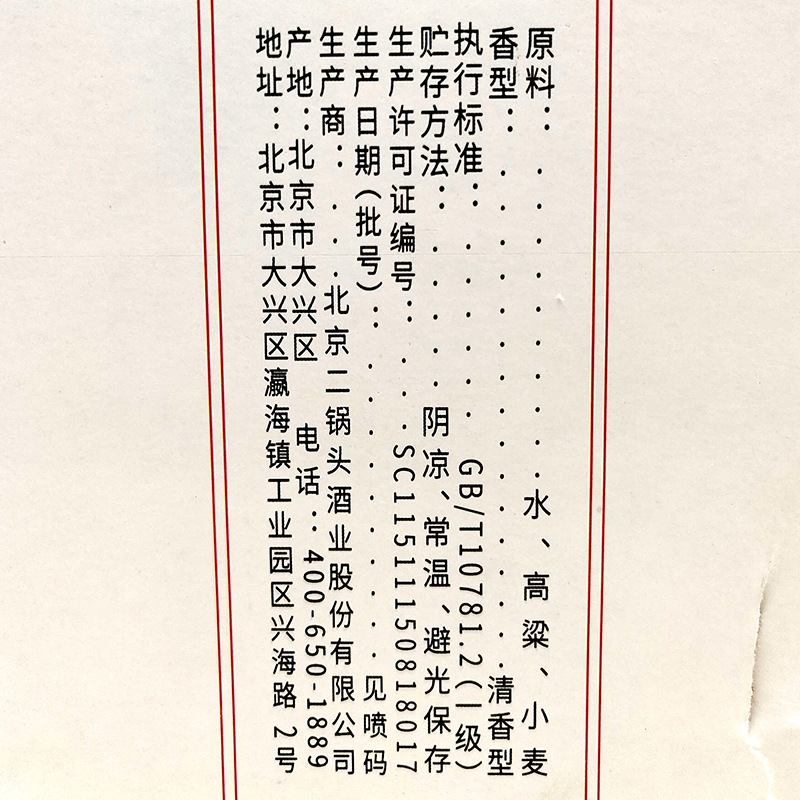 原料：............水、高粱、小麦
香型：..............清香型
执行标准：.....GB/T10781.2(一级)
贮存方法：.....阴凉、常温、避光保存
生产许可证编号：...SC11511150818017
生产日期(批号)：..........见喷码
生产商：...北京二锅头酒业股份有限公司
产地：北京市大兴区 电话：400-650-1889
地址：北京市大兴区瀛海镇工业园区兴海路 2号